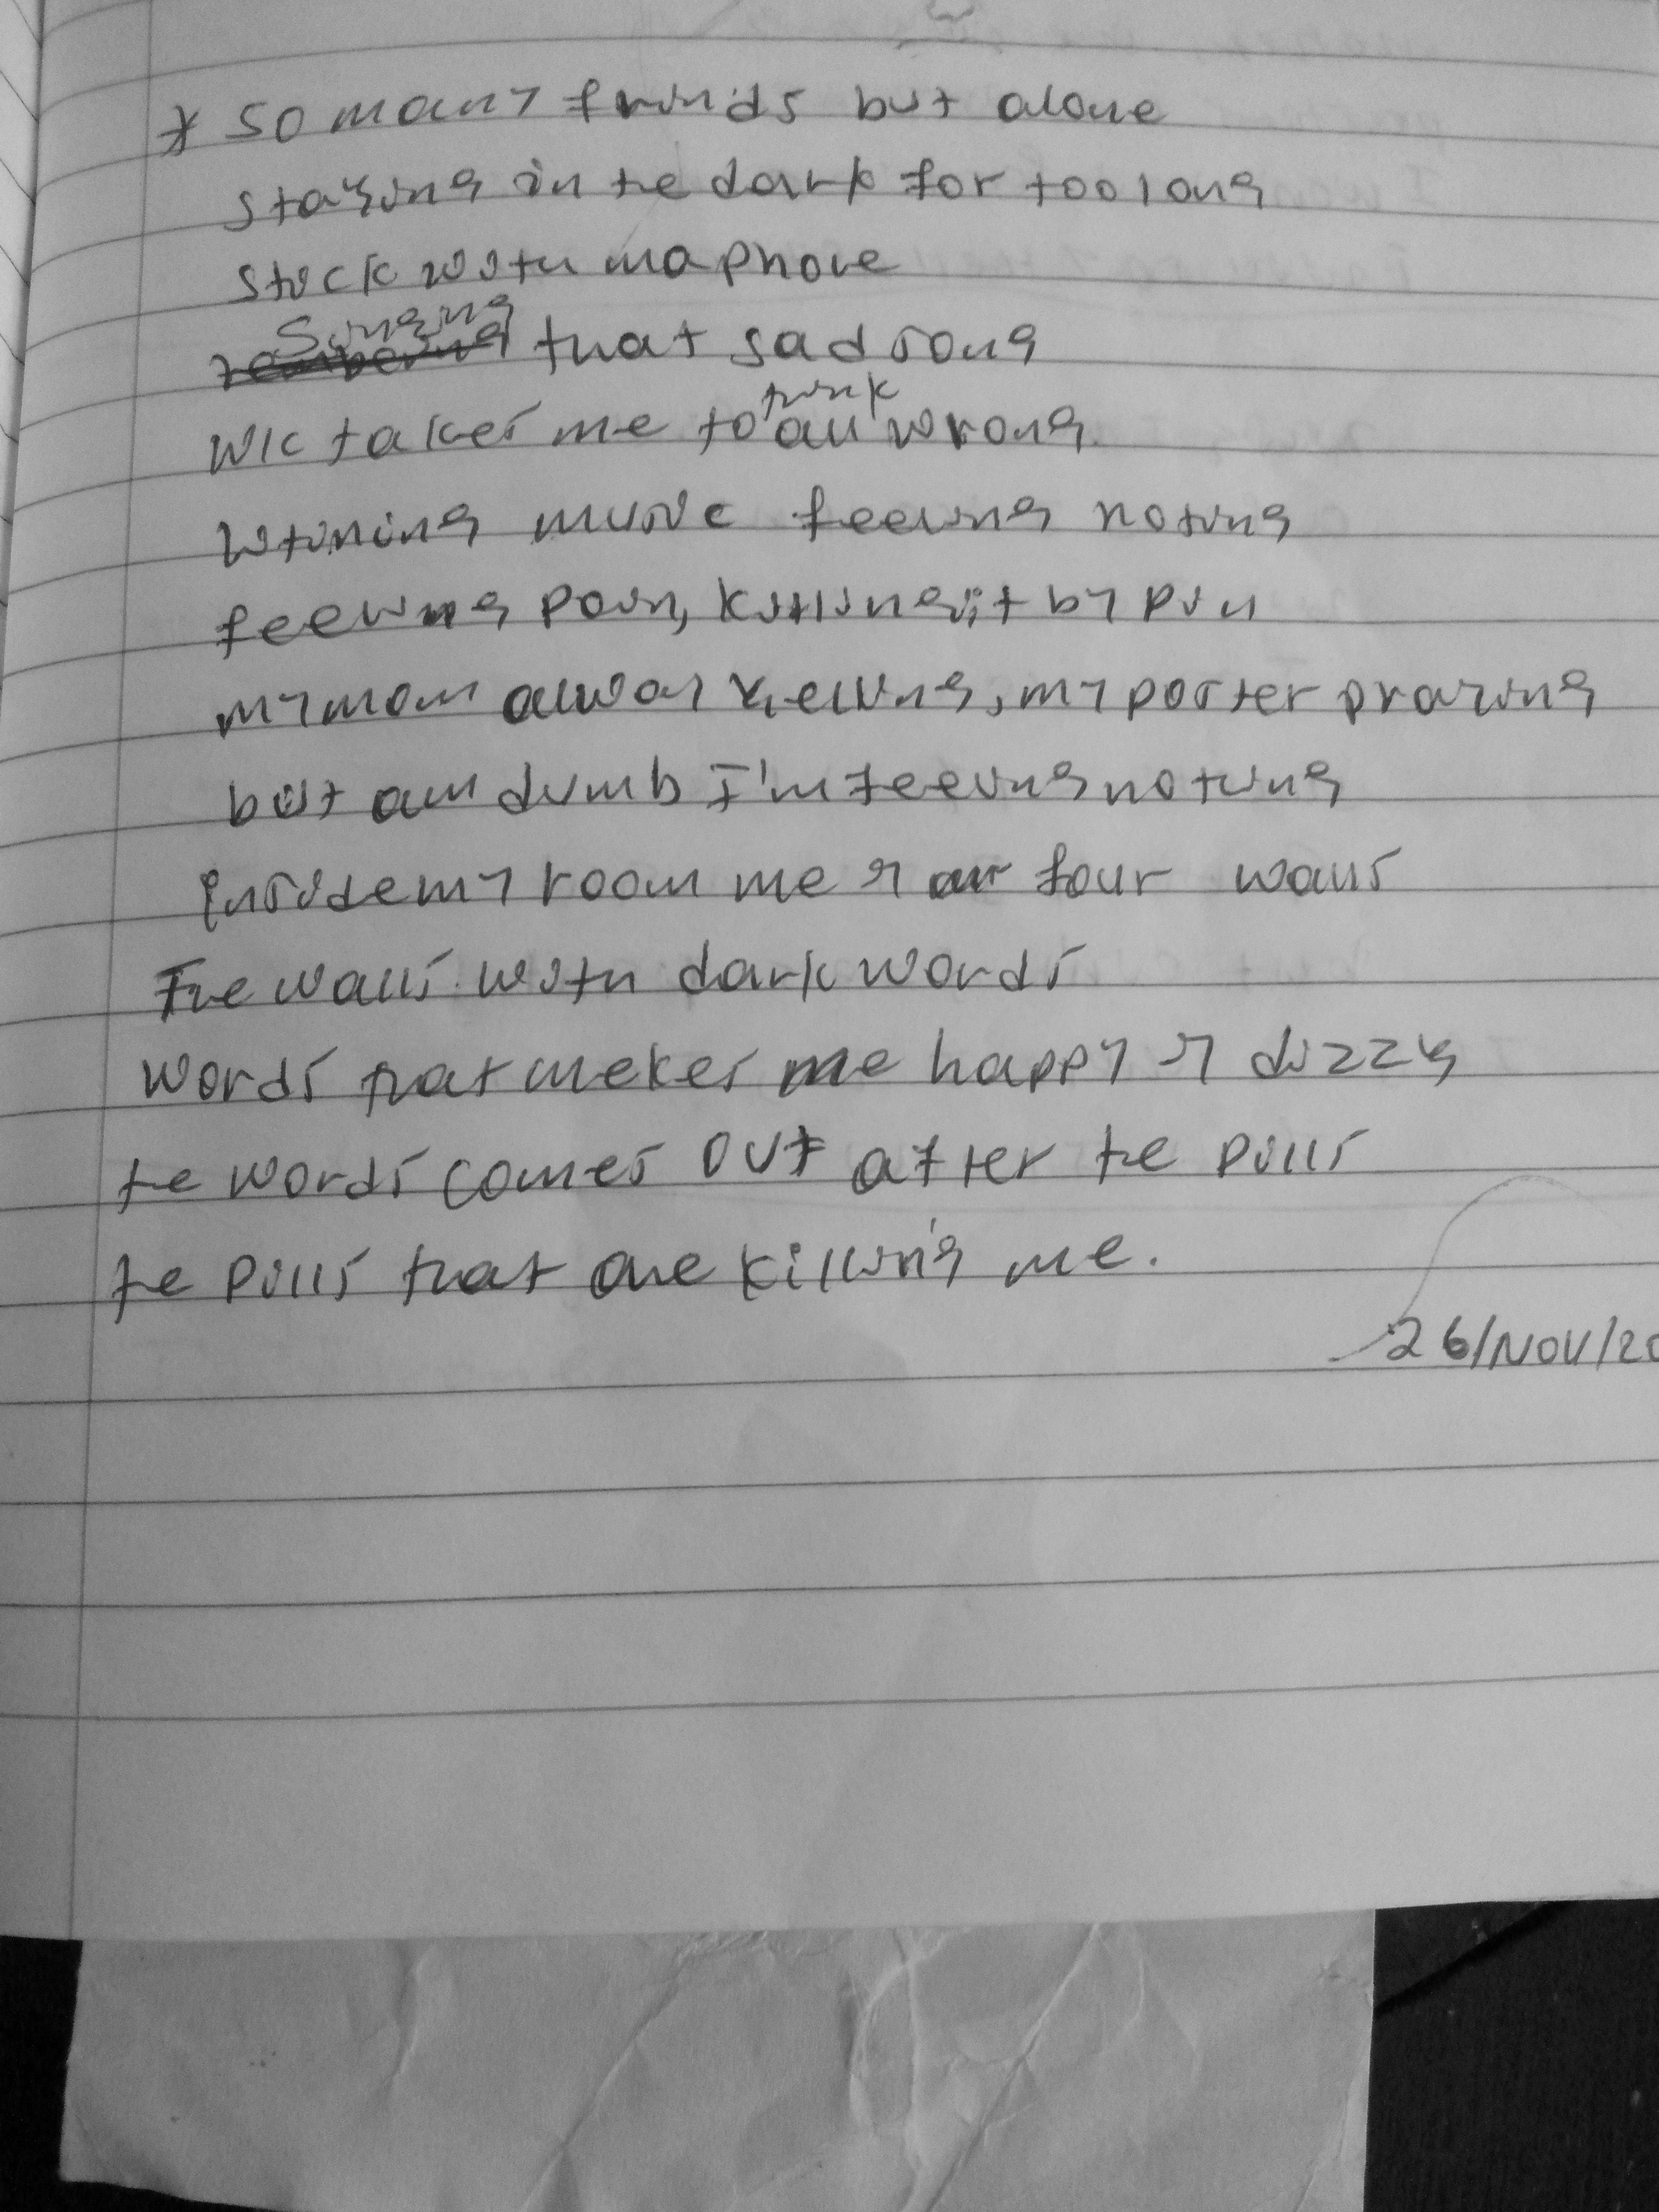 * So many frinds but alone
staying in te dark for too long
stuck with ma phone
Singing that sad song
wic takes me to think all wrong
listining music feeling noting
feeling pain, killing it by pin
my mom alway yelling, my paster praying
but am dumb I'm feeling noting
Inside my room me & four walls
The walls with dark words
words that mekes me happy & dizzy
te words comes out after te pills
te pills that are killing me.
26/NOV/20